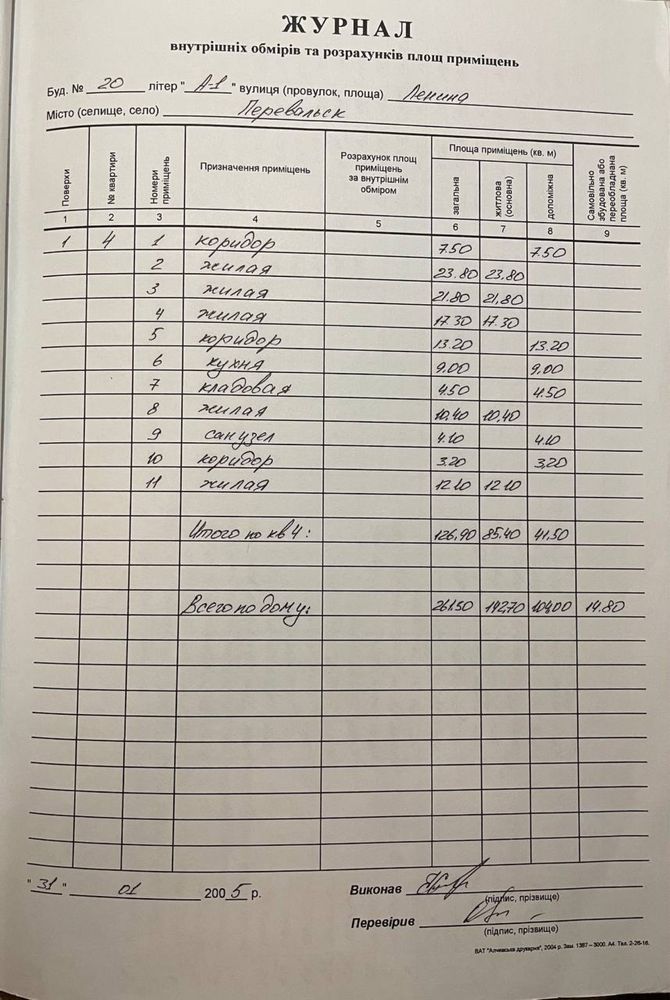 ЖУРНАЛ
внутрішніх обмірів та розрахунків площ приміщень
Буд. № 20 літер "А-1" вулиця (провулок, площа) Ленина
Місто (селище, село) Перевальск
Поверхи № квартири Номери приміщень Призначення приміщень Розрахунок площ приміщень за внутрішнім обміром Площа приміщень (кв. м) загальна житлова (основна) допоміжна Самовільно збудована або переобладнана площа (кв. м)
1 2 3 4 5 6 7 8 9
1 4 1 коридор 7.50 7.50
2 жилая 23.80 23.80
3 жилая 21.80 21,80
4 жилая 17.30 17.30
5 коридор 13.20 13.20
6 кухня 9.00 9.00
7 кладовая 4.50 4.50
8 жилая 10,40 10,40
9 санузел 4.10 4.10
10 коридор 3.20 3,20
11 жилая 12.10 12.10
Итого по кв 4: 126,90 85.40 41,50
Всего по дому: 261.50 192,70 14.80
"31" 01 2005 р.
Виконав
(підпис, прізвище)
Перевірив
(підпис, прізвище)
ВАТ "Алчевська друкарня", 2004 р. Зам. 1387 – 3000. А4. Тел. 2-26-16.